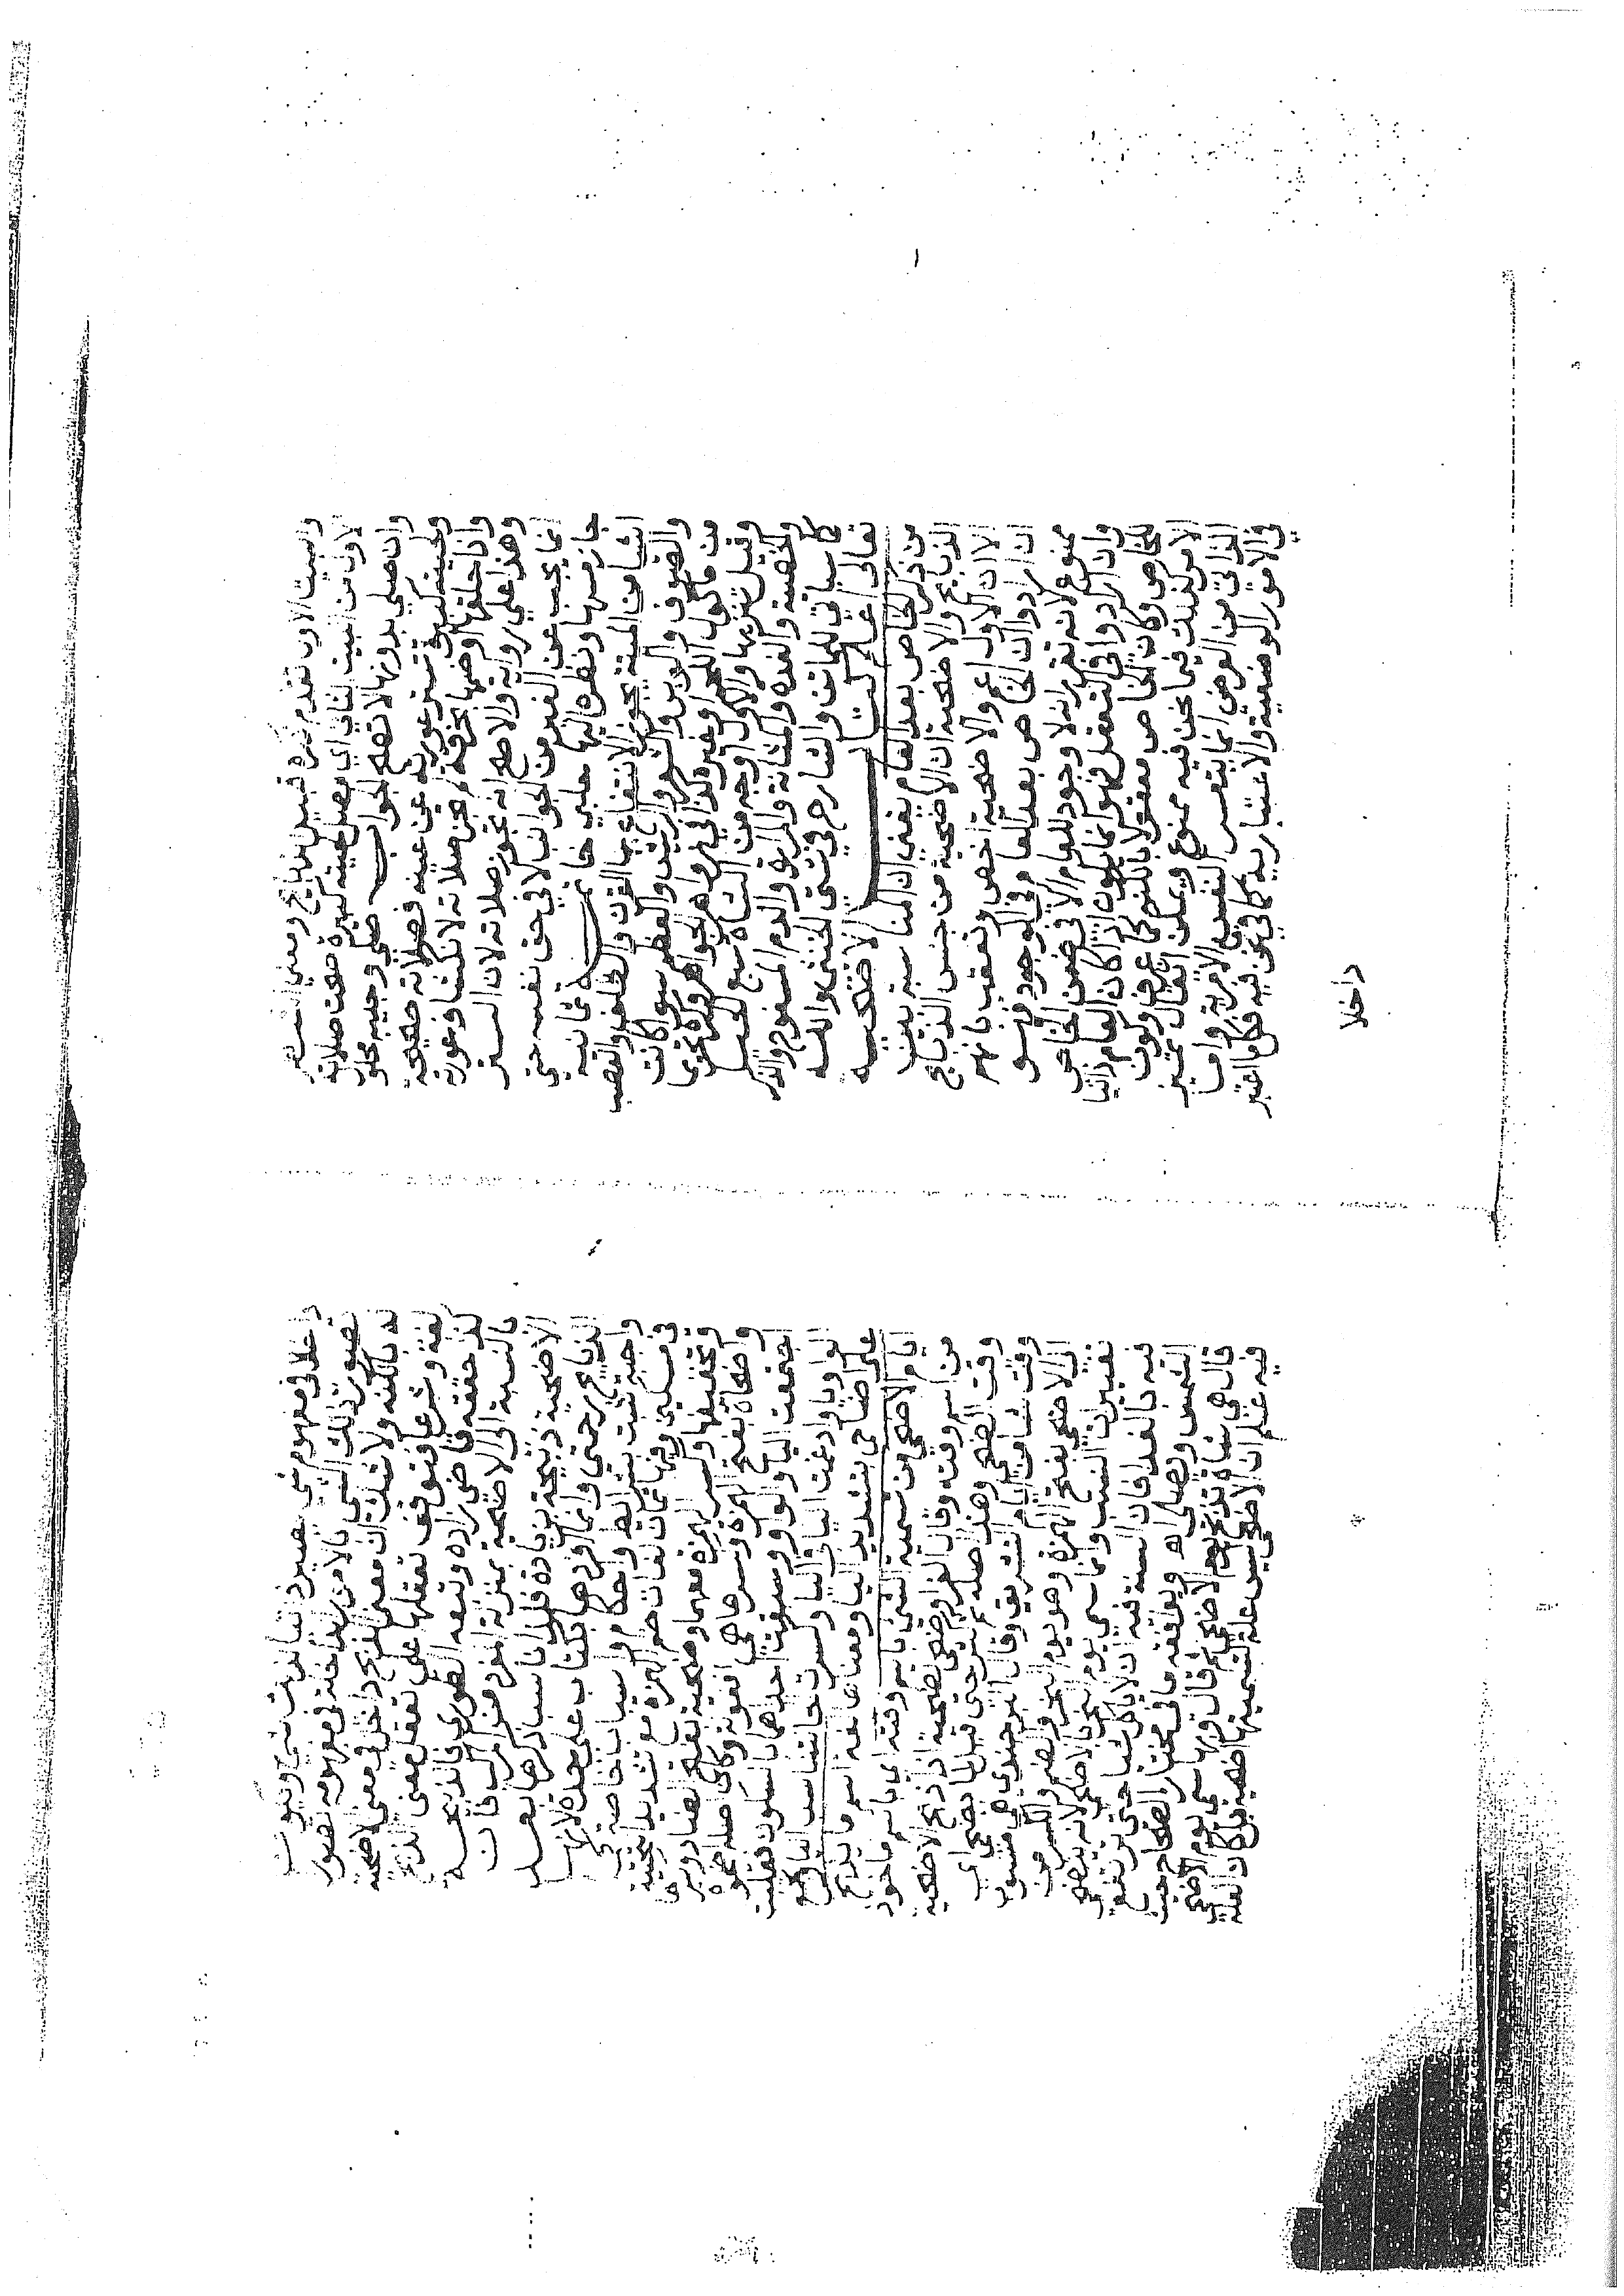 والبيت الاول تقدم شرحه قبيل الذبائح ومعنى الشطر
الاول من البيت الثاني اي مصل لحيته كبيرة صحت صلاته
وان صلى بدونها لا تصح الجواب صلى وجيبه محلول
ولحيته كبيرة تستر عورته عن عينه فصلاته صحيحة
واذا حلقها او ضمها بخرقة لم تجز صلاته لانكشاف عورته
وهذا على رواية والاصح انه تجوز صلاته لان الستر
انما يجب عن الغير من الجوانب لا في حق نفسه حتى
جاز مسها ونظره اليها حلبي خاتمة ثمانية
اشيا من الميتة يجوز الانتفاع بها القرن والظلف والعصب
والصوف والوبر والشعر والريش والعظم سوا كانت
من مأكول اللحم او غيره كذا في زواهر الجواهر وكره تحريما
وقيل تنزيها والاول اوجه من الشاة سبع الحيا
والخصية والغده والمثانة والمراره والدم المسفوح والذكر
كما سياتي للماتن والشارح في شتى الخنثى والله
تعالى اعلم كتاب الاضحية
من ذكر الخاص بعد العام يعني ان المناسبة بين
الذبائح والاضحية ان الاضحية من جنس الذبائح
الا ان الاول اعم والاضحية اخص وتعقب بانهم
ان ارادوا ان الخاص بعد العام في الوجود فهو
ممنوع لانه تقرر انه لا وجود للعام الا في ضمن الخاص
وان ارادوا في التعقل فهو انما يكون اذا كان العام ذاتيا
للخاص وكان الخاص معقولا بالكنه كما عرف وكون
الامر كذلك فيما نحن فيه ممنوع ويمكن ان يقال تمييز
الذاتي من العرضي انما يتعسر النفس الامرية واما
في الامور الوضعية والاعتبارية كما في نحن فيه فكل ما اعتبر
داخلا
داخلا في مفهوم شي يعتبر ذاتيا لذلك الشي ويكون
تصور ذلك الشي بالامور الداخلة في مفهومه تصورا
له بالكنه ولا شك ان معنى الذبح داخل في معنى الاضحية
لغة وشرعا فتوقف تعقلها على تعقل معنى الذبح
كذا حققه قاضي زاده وتبعه الطوري فالذبيحة
بالنسبة الى الاضحية بمنزلة المفرد من المركب فان
الاضحية ذبيحة بزيادة فلذا ناسب ذكرها بعد
الذبائح رحمتي وانما افردها بكتاب على حدة لانها
واجبة تثبت بشرائط واحكام واسباب خاصة
وفيها ثمان لغات ضم الهمزة مع تشديد التحتية
وتخفيفها وكسر الهمزة معهما وضحية بفتح الضاد وكسرها
واضحاة بفتح الهمزة وكسرها هي افعولة وكان اصله اضحوية
اجتمعت اليا والواو وسبقت احداهما بالسكون فقلبت
الواو يا وادغمت اليا في اليا وكسرت الحا لتناسب اليا وتجمع
على اضاحي بتشديد اليا ومعناها لغة اسم ما يذبح
ايام الاضحى من تسمية الشي باسم وقته اي باسم ماخوذ
من اسم وقته وقال الغرام ضحى تضحية اذا ذبح الاضحية
وقت الضحى وهذا اصله ثم كثر حتى قيل لما يضحى اي
وقت شا من ايام التشريق وقال البرجندي هي منسوب
الى الاضحى بفتح الهمزة وهو يوم النحر والضم والكسر من
تغييرات النسب وانما سمي يوم النحر بالاضحى لانه يتضحى
فيه بالغداة فان السنة فيه ان لا ياكل شيا حتى ترتفع
الشمس ويصلى اهـ ويوافقه ما في مختار الصحاح حيث
قال هي شاة تذبح يوم الاضحى ثم قال وبها سمي يوم الاضحى
فيه علم ان الاضحى ليس علة لتسميتها اضحية بل كان العلة